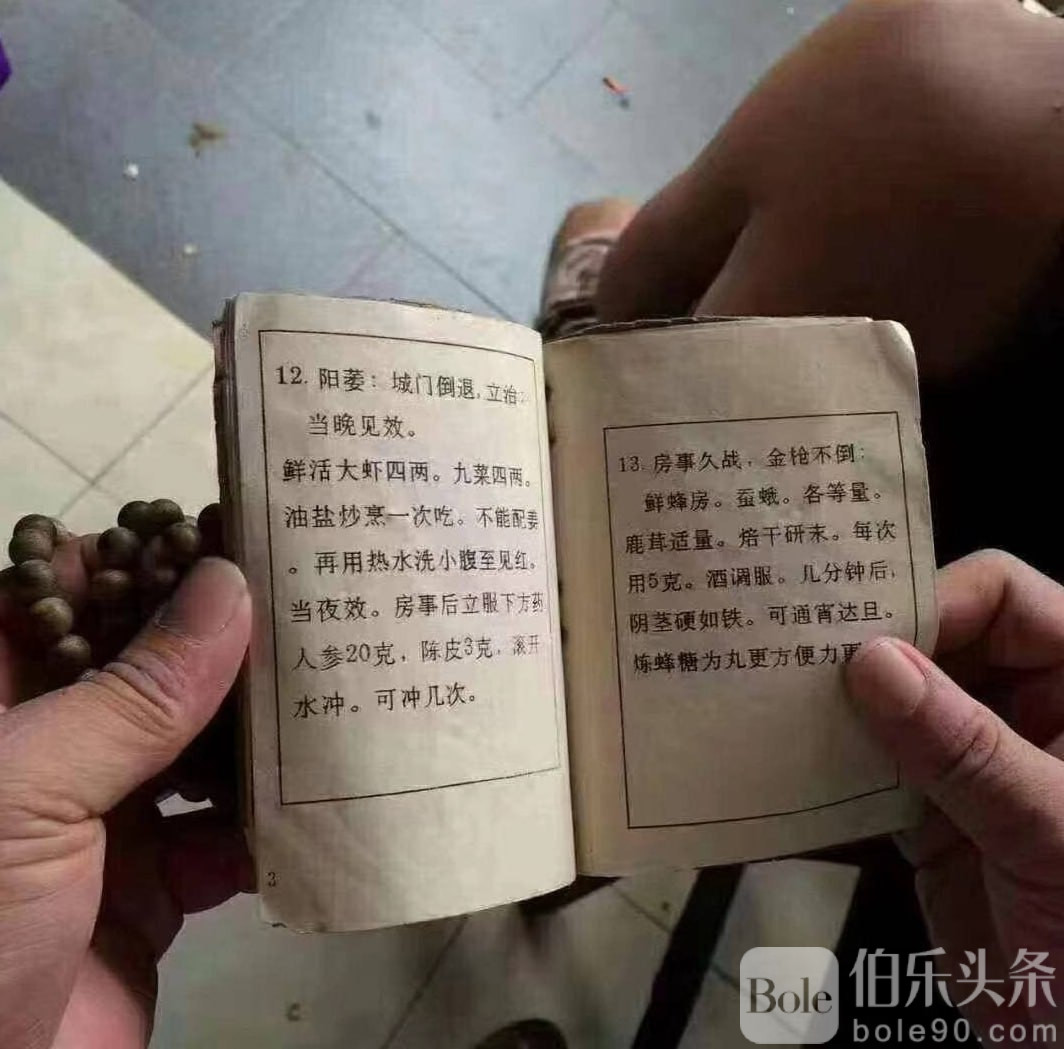 12. 阳萎：城门倒退,立治：
当晚见效。
鲜活大虾四两。九菜四两。
油盐炒烹一次吃。不能配姜
。再用热水洗小腹至见红。
当夜效。房事后立服下方药
人参20克，陈皮3克，滚开
水冲。可冲几次。
3
13. 房事久战，金枪不倒：
鲜蜂房。蚕蛾。各等量。
鹿茸适量。焙干研末。每次
用5克。酒调服。几分钟后，
阴茎硬如铁。可通宵达旦。
炼蜂糖为丸更方便力更
Bole
伯乐头条
bole90.com